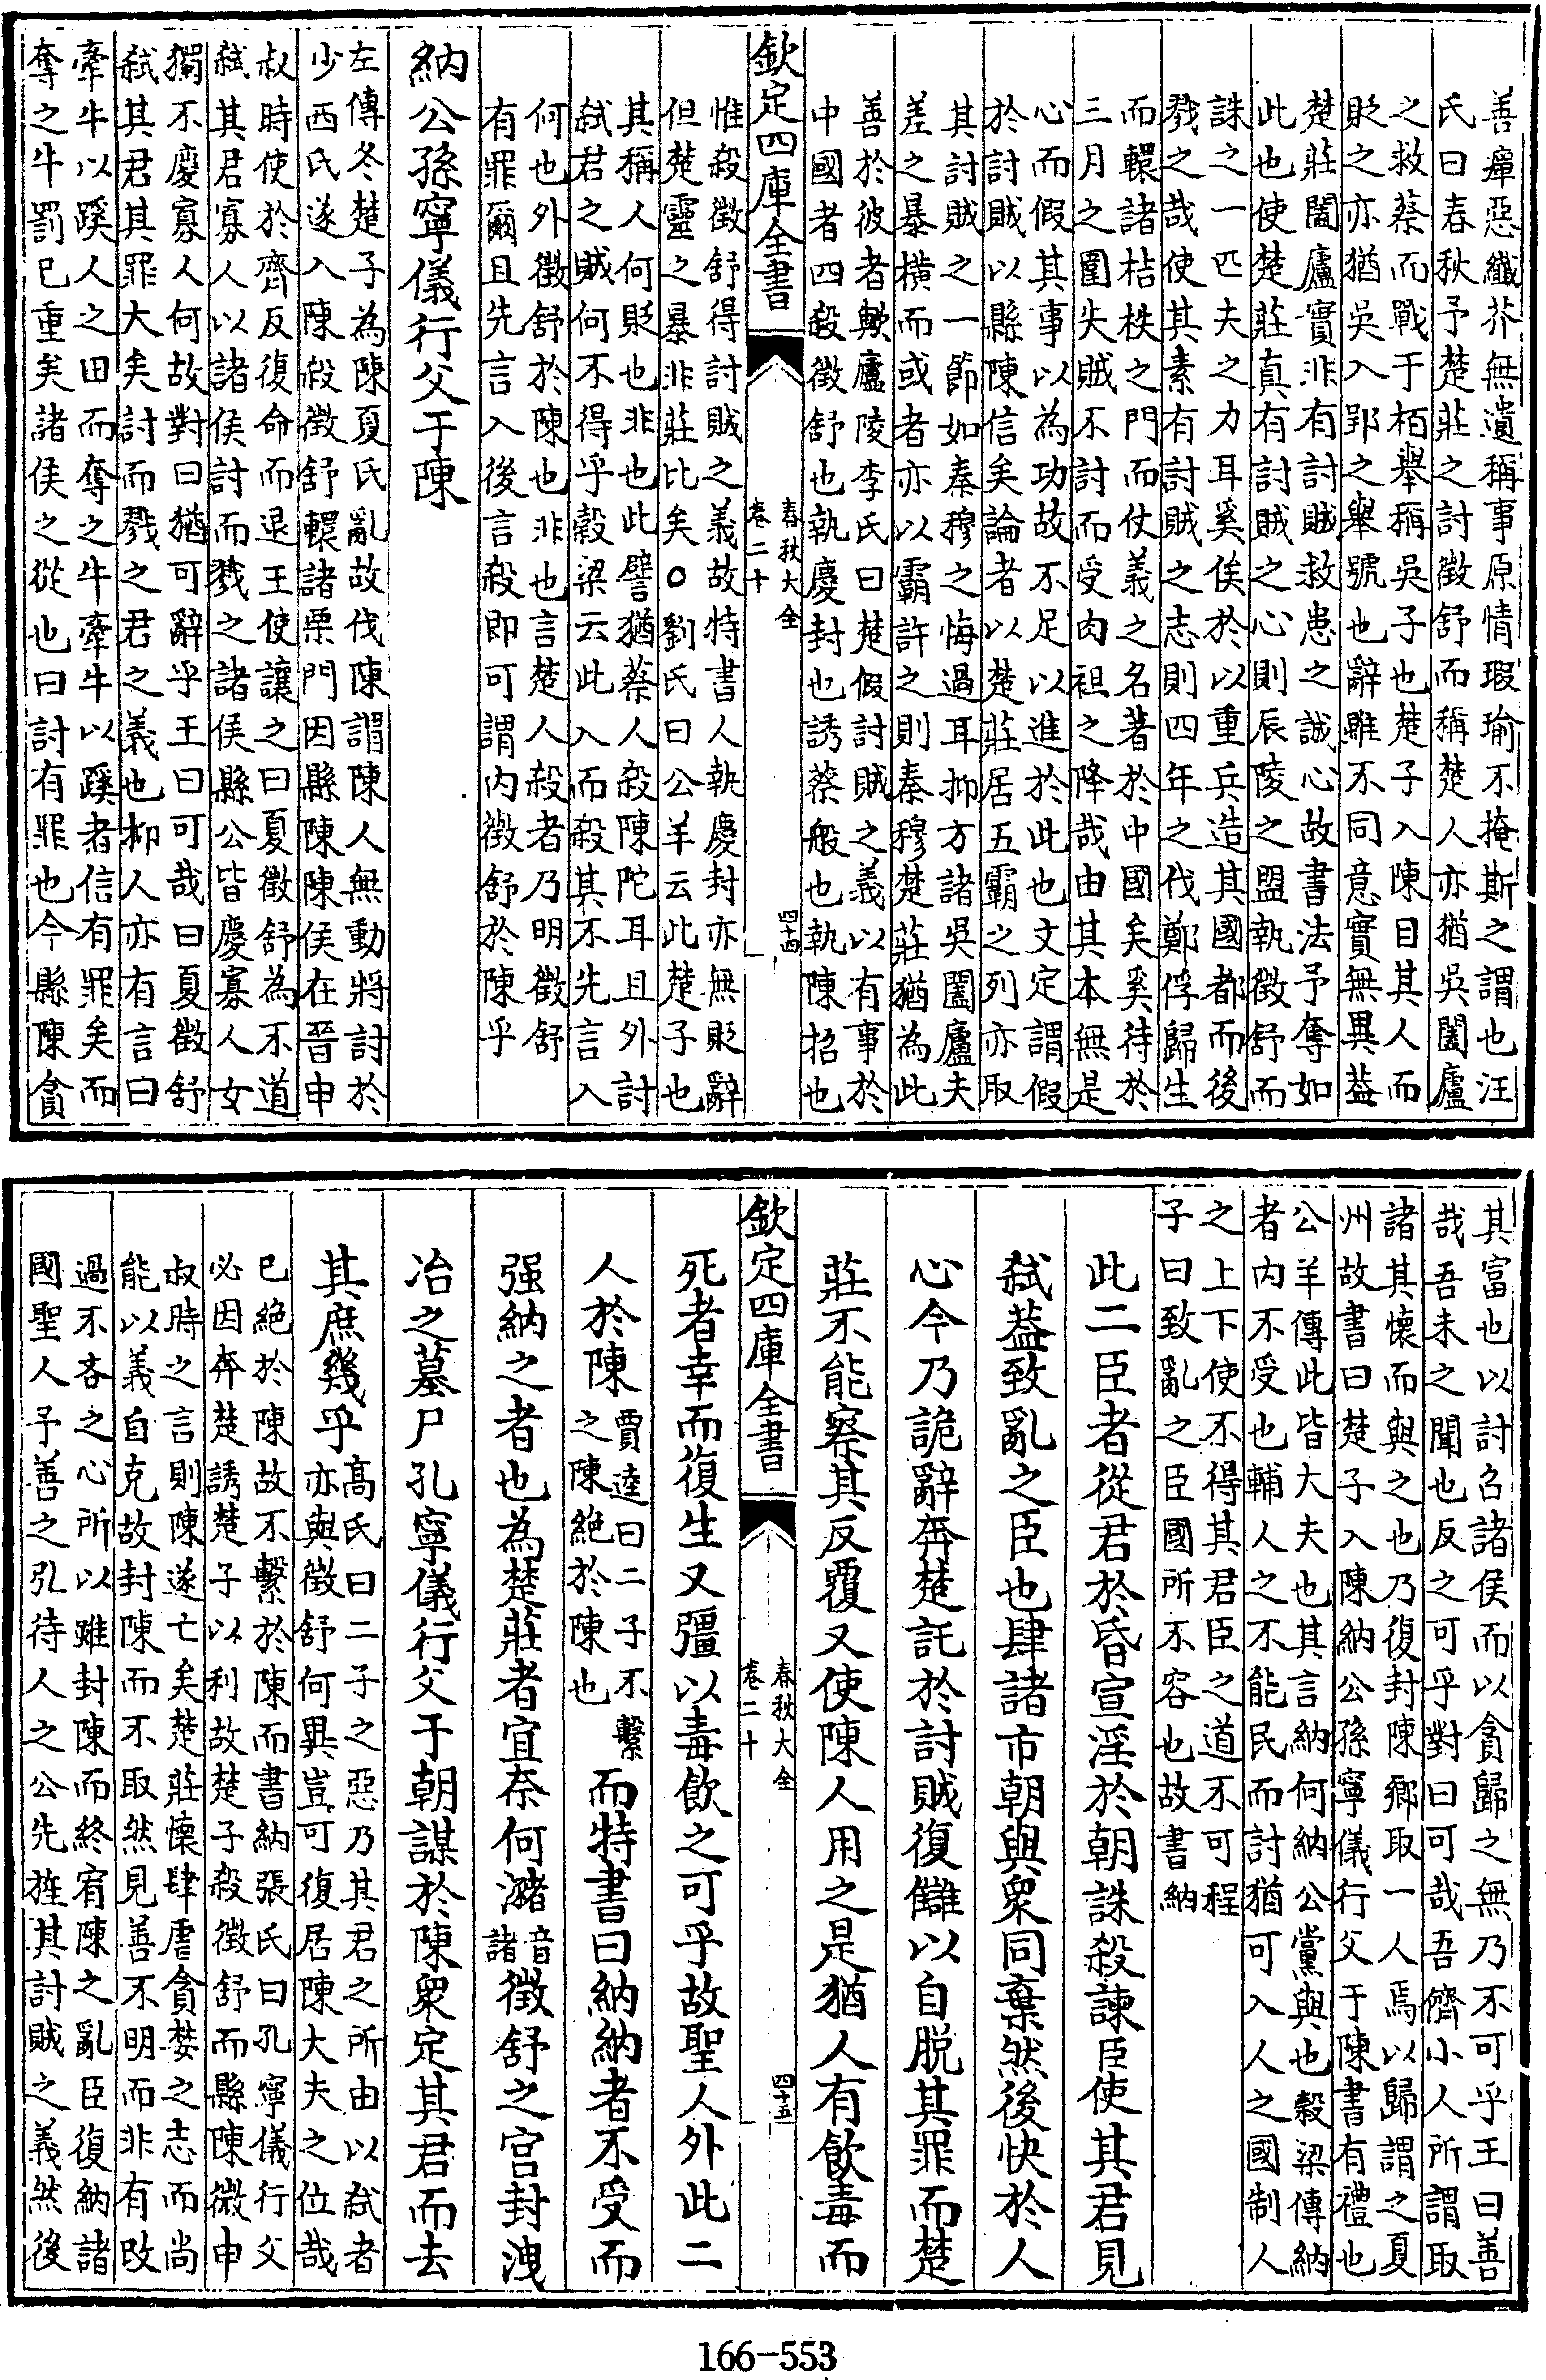 善癉惡纖芥無遺稱事原情瑕瑜不掩斯之謂也汪
氏曰春秋予楚莊之討徵舒而稱楚人亦猶吳闔廬
之救蔡而戰于栢舉稱吳子也楚子入陳目其人而
貶之亦猶吳入郢之舉號也辭雖不同意實無異葢
楚莊闔廬實非有討賊救患之誠心故書法予奪如
此也使楚莊真有討賊之心則辰陵之盟執徵舒而
誅之一匹夫之力耳奚俟於以重兵造其國都而後
戮之哉使其素有討賊之志則四年之伐鄭俘歸生
而轘諸桔柣之門而仗義之名著於中國矣奚待於
三月之圍失賊不討而受肉袒之降哉由其本無是
心而假其事以為功故不足以進於此也文定謂假
於討賊以縣陳信矣論者以楚莊居五霸之列亦取
其討賊之一節如秦穆之悔過耳抑方諸吳闔廬夫
差之暴橫而或者亦以霸許之則秦穆楚莊猶為此
善於彼者歟廬陵李氏曰楚假討賊之義以有事於
中國者四殺徵舒也執慶封也誘蔡般也執陳招也
欽定四庫全書
春秋大全
卷二十
四十四
惟殺徵舒得討賊之義故特書人執慶封亦無貶辭
但楚靈之暴非莊比矣○劉氏曰公羊云此楚子也
其稱人何貶也非也此譬猶蔡人殺陳陀耳且外討
弑君之賊何不得乎穀梁云此入而殺其不先言入
何也外徵舒於陳也非也言楚人殺者乃明徵舒
有罪爾且先言入後言殺即可謂内徵舒於陳乎
納公孫寧儀行父于陳
左傳冬楚子為陳夏氏亂故伐陳謂陳人無動將討於
少西氏遂入陳殺徵舒轘諸栗門因縣陳陳侯在晉申
叔時使於齊反復命而退王使讓之曰夏徵舒為不道
弑其君寡人以諸侯討而戮之諸侯縣公皆慶寡人女
獨不慶寡人何故對曰猶可辭乎王曰可哉曰夏徵舒
弑其君其罪大矣討而戮之君之義也抑人亦有言曰
牽牛以蹊人之田而奪之牛牽牛以蹊者信有罪矣而
奪之牛罰已重矣諸侯之從也曰討有罪也今縣陳貪
其富也以討召諸侯而以貪歸之無乃不可乎王曰善
哉吾未之聞也反之可乎對曰可哉吾儕小人所謂取
諸其懷而與之也乃復封陳鄉取一人焉以歸謂之夏
州故書曰楚子入陳納公孫寧儀行父于陳書有禮也
公羊傳此皆大夫也其言納何納公黨與也穀梁傳納
者内不受也輔人之不能民而討猶可入人之國制人
之上下使不得其君臣之道不可程
子曰致亂之臣國所不容也故書納
此二臣者從君於昏宣淫於朝誅殺諫臣使其君見
弑葢致亂之臣也肆諸市朝與衆同棄然後快於人
心今乃詭辭奔楚託於討賊復讎以自脱其罪而楚
莊不能察其反覆又使陳人用之是猶人有飲毒而
欽定四庫全書
春秋大全
卷二十
四十五
死者幸而復生又彊以毒飲之可乎故聖人外此二
人於陳賈逵曰二子不繫之陳絶於陳也而特書曰納納者不受而
强納之者也為楚莊者宜奈何瀦音諸徵舒之宫封洩
冶之墓尸孔寧儀行父于朝謀於陳衆定其君而去
其庶幾乎高氏曰二子之惡乃其君之所由以弑者
亦與徵舒何異豈可復居陳大夫之位哉
已絶於陳故不繫於陳而書納張氏曰孔寧儀行父
必因奔楚誘楚子以利故楚子殺徵舒而縣陳微申
叔時之言則陳遂亡矣楚莊懷肆虐貪婪之志而尚
能以義自克故封陳而不取然見善不明而非有改
過不吝之心所以雖封陳而終宥陳之亂臣復納諸
國聖人予善之弘待人之公先旌其討賊之義然後
166-553